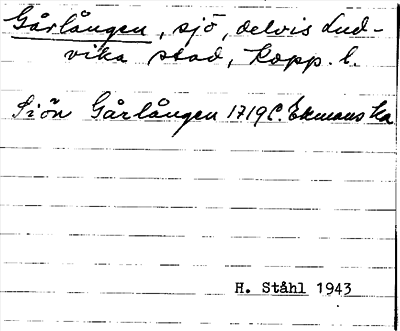 Gårlången, sjö, delvis Lud-
vika stad, Kopp. l.
Siön Gårlången 1719 C. Ekmans Ka
H. Ståhl 1943